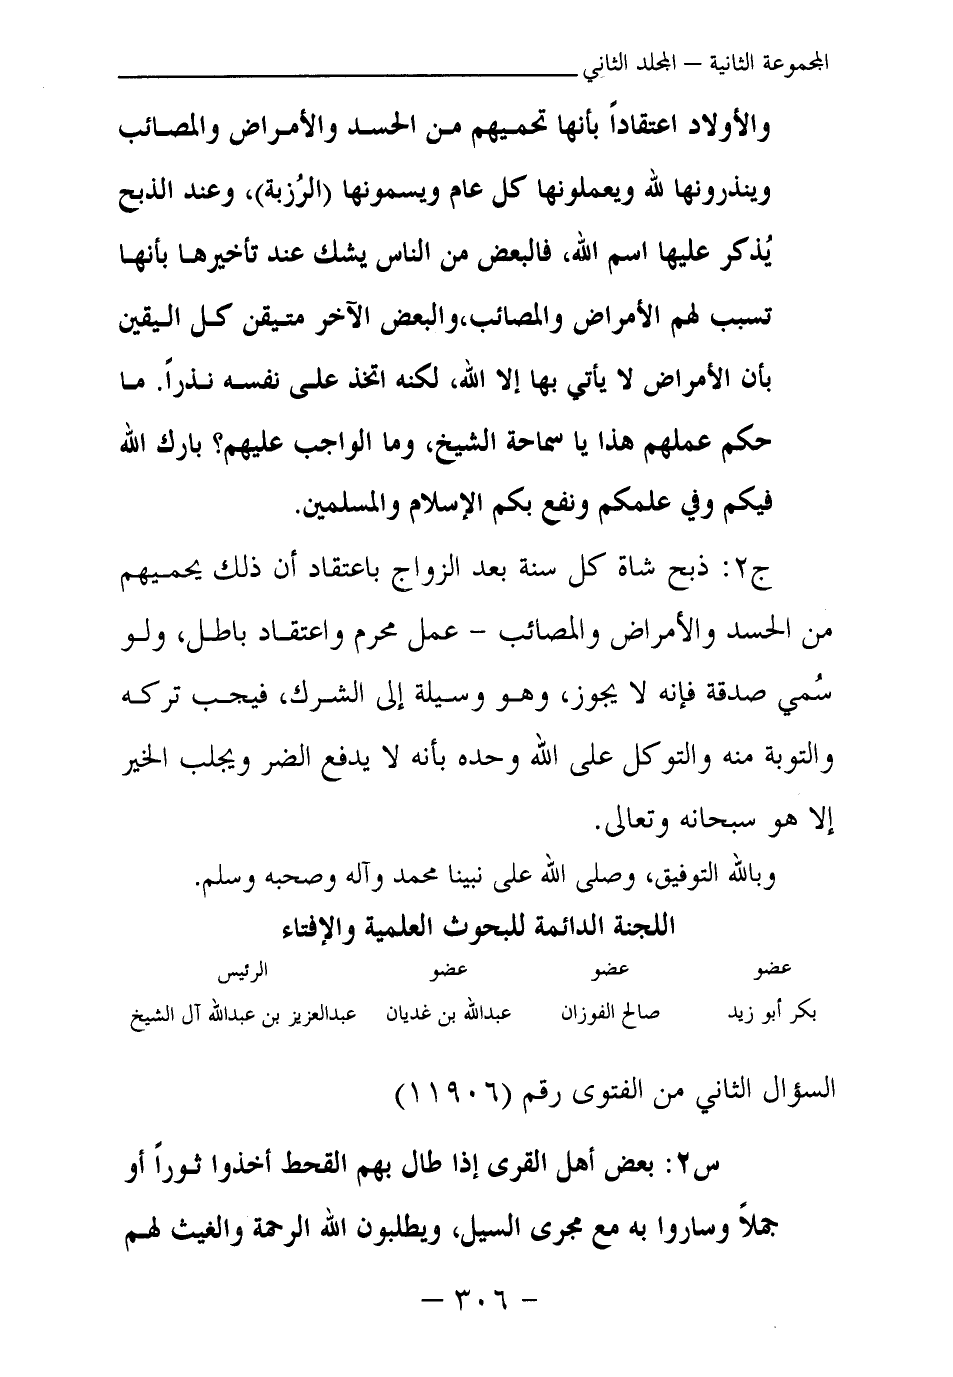 المجموعة الثانية – المجلد الثاني
والأولاد اعتقاداً بأنها تحميهم من الحسد والأمراض والمصائب
وينذرونها لله ويعملونها كل عام ويسمونها (الرُزبة)، وعند الذبح
يُذكر عليها اسم الله، فالبعض من الناس يشك عند تأخيرها بأنها
تسبب لهم الأمراض والمصائب،والبعض الآخر متيقن كل اليقين
بأن الأمراض لا يأتي بها إلا الله، لكنه اتخذ على نفسه نذراً. ما
حكم عملهم هذا يا سماحة الشيخ، وما الواجب عليهم؟ بارك الله
فيكم وفي علمكم ونفع بكم الإسلام والمسلمين.
ج٢: ذبح شاة كل سنة بعد الزواج باعتقاد أن ذلك يحميهم
من الحسد والأمراض والمصائب – عمل محرم واعتقاد باطل، ولو
سُمي صدقة فإنه لا يجوز، وهو وسيلة إلى الشرك، فيجب تركه
والتوبة منه والتوكل على الله وحده بأنه لا يدفع الضر ويجلب الخير
إلا هو سبحانه وتعالى.
وبالله التوفيق، وصلى الله على نبينا محمد وآله وصحبه وسلم.
اللجنة الدائمة للبحوث العلمية والإفتاء
عضو عضو عضو الرئيس
بكر أبو زيد صالح الفوزان عبدالله بن غديان عبدالعزيز بن عبدالله آل الشيخ
السؤال الثاني من الفتوى رقم (١١٩٠٦)
س٢: بعض أهل القرى إذا طال بهم القحط أخذوا ثوراً أو
جملاً وساروا به مع مجرى السيل، ويطلبون الله الرحمة والغيث لهم
– ٣٠٦ –